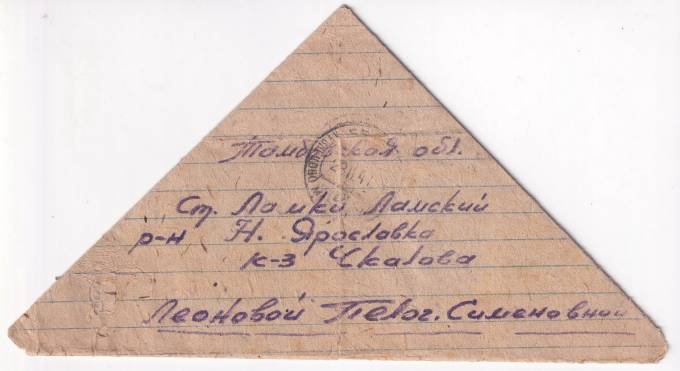 Тамбовская обл.
Ст. Ламки Ламский
р-н Н. Ярославка
к-з Чкалова
Леоновой Пелог. Сименовний